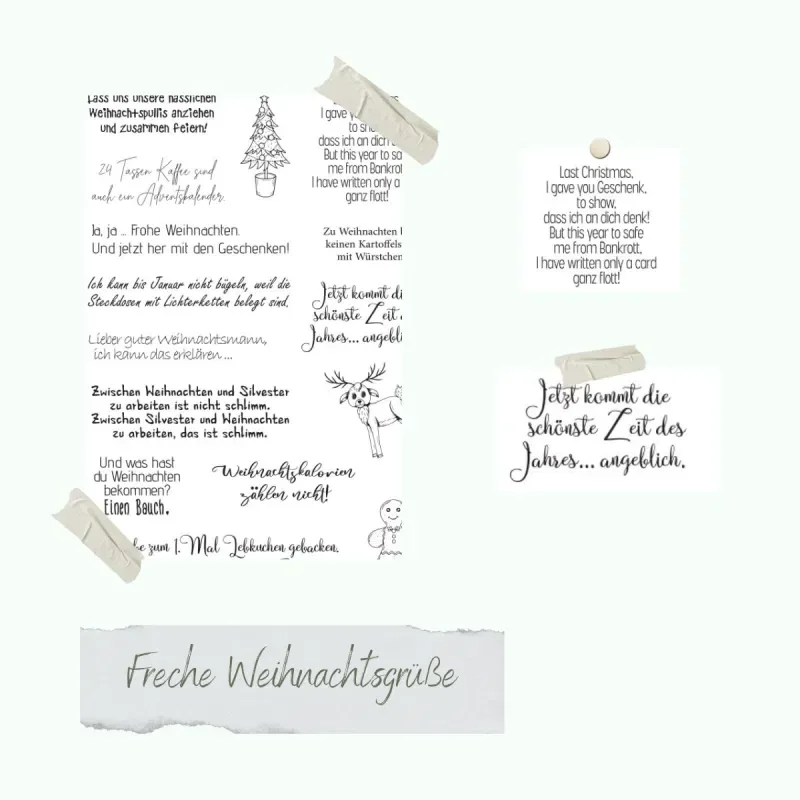 Lass uns unsere hässlichen
Weihnachtspullis anziehen
und zusammen feiern!
24 Tassen Kaffee sind
auch ein Adventskalender.
Ja, ja ... Frohe Weihnachten.
Und jetzt her mit den Geschenken!
Ich kann bis Januar nicht bügeln, weil die
Steckdosen mit Lichterketten belegt sind.
Lieber guter Weihnachtsmann,
ich kann das erklären ...
Zwischen Weihnachten und Silvester
zu arbeiten ist nicht schlimm.
Zwischen Silvester und Weihnachten
zu arbeiten, das ist schlimm.
Und was hast
du Weihnachten
bekommen?
Einen Bauch.
Weihnachtskalorien
zählen nicht!
be zum 1. Mal Lebkuchen gebacken.
I gave
to
dass ich an dich
But this year to sa
me from Bankrot
I have written only a
ganz flott!
Zu Weihnachten
keinen Kartoffels
mit Würstchen
Jetzt kommt di
schönste Zeit
Jahres... angebli
Last Christmas,
I gave you Geschenk,
to show,
dass ich an dich denk!
But this year to safe
me from Bankrott,
I have written only a card
ganz flott!
Jetzt kommt die
schönste Zeit des
Jahres... angeblich.
Freche Weihnachtsgrüße